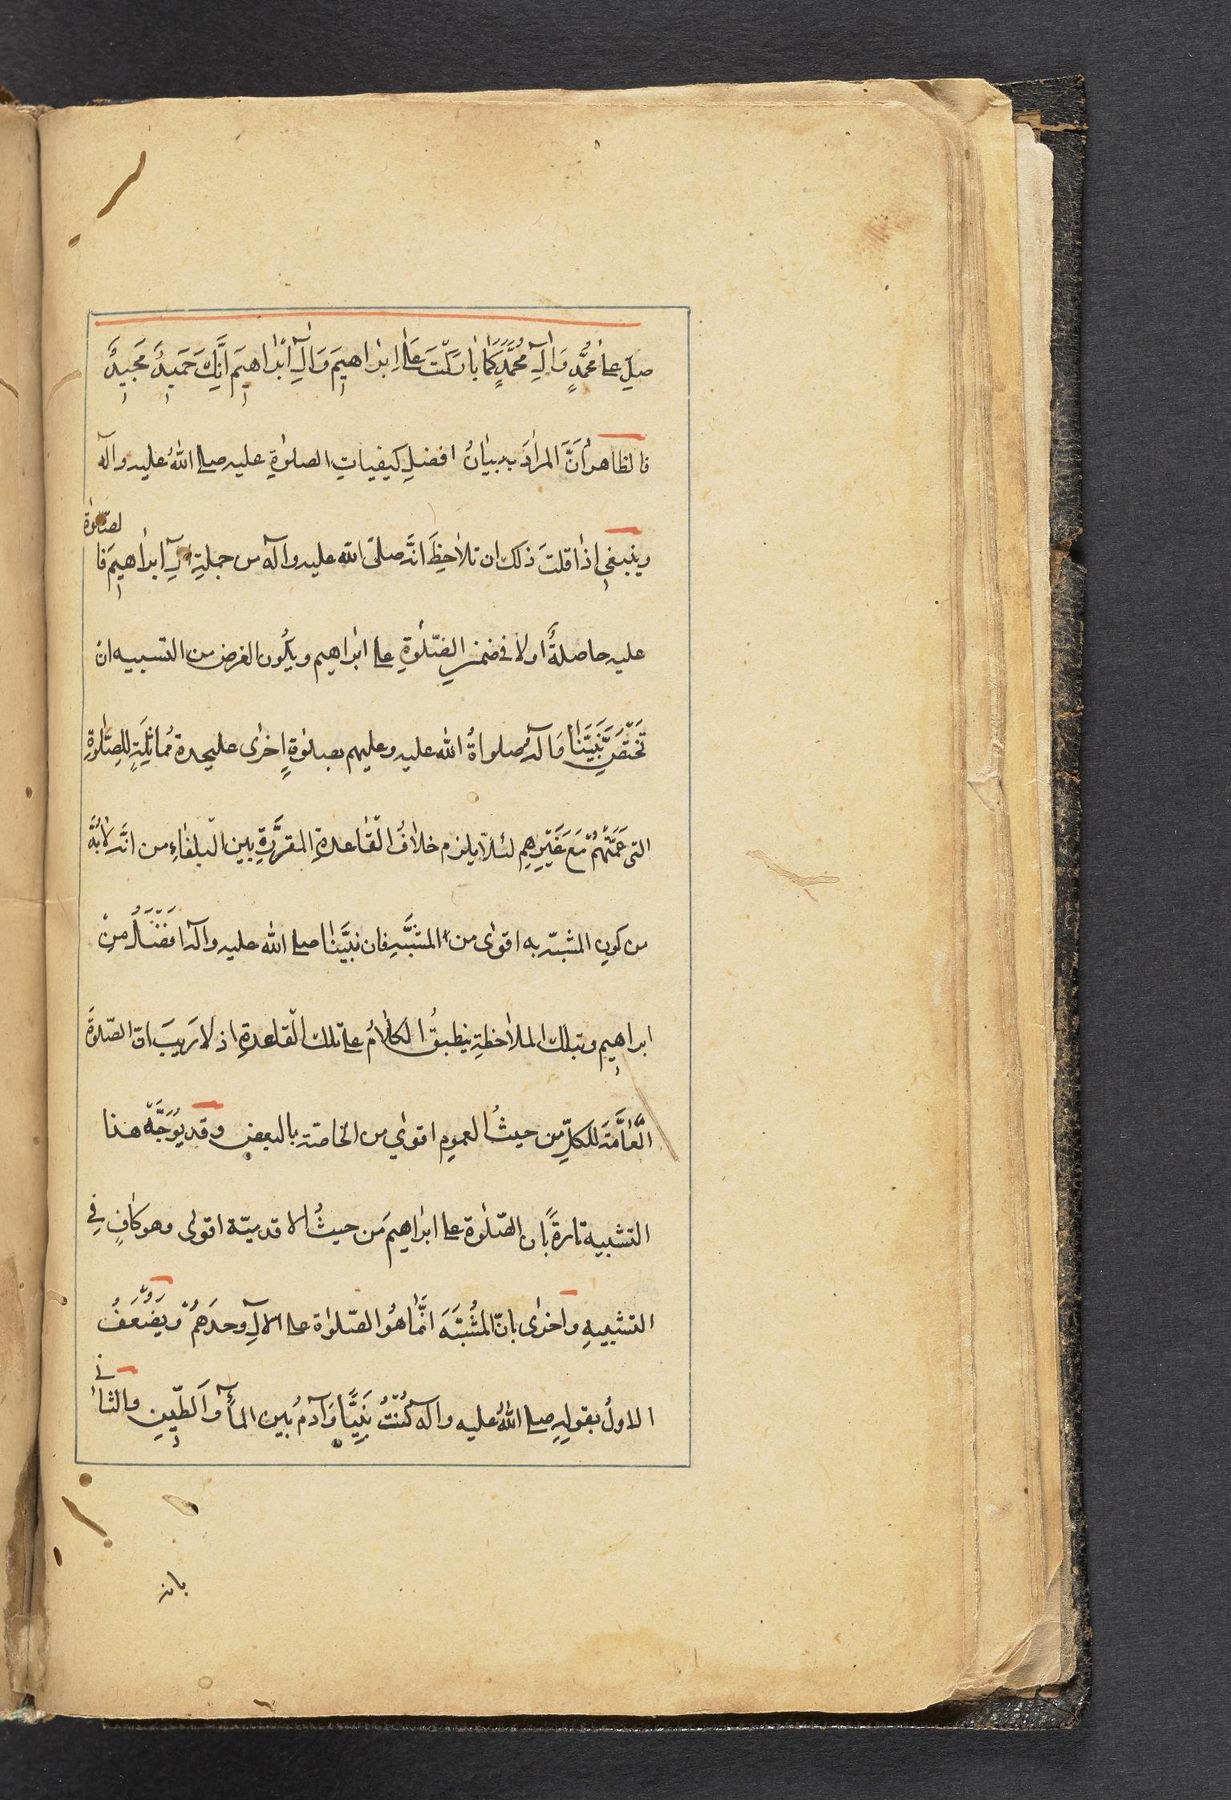 صل على محمد وال محمد كما باركت على ابراهيم وال ابراهيم انك حميد مجيد
فالظاهر ان المراد به بيان افضل كيفيات الصلوة عليه صلى الله عليه وآله
وينبغي اذا قلت ذلك ان تلاحظ انه صلى الله عليه وآله من جملة آل ابراهيم فا
لصلوة
عليه حاصلة اولا في ضمن الصلوة على ابراهيم ويكون الغرض من التشبيه ان
تختص نبينا وآله صلواة الله عليه وعليهم بصلوة اخرى عليحدة مماثلة للصلوة
التي عمتهم مع غيرهم لئلا يلزم خلاف القاعدة المقررة بين البلغاء من انه لابد
من كون المشبه به اقوى من المشبه فان نبينا صلى الله عليه وآله افضل من
ابراهيم وبتلك الملاحظة ينطبق الكلام على تلك القاعدة اذ لا ريب ان الصلوة
العامة للكل من حيث العموم اقوى من الخاصة بالبعض وقد يوجه هذا
التشبيه تارة بان الصلوة على ابراهيم من حيث الاقدمية اقوى وهو كاف في
التشبيه واخرى بان المشبه انما هو الصلوة على الآل وحدهم ويضعف
الاول بقوله صلى الله عليه وآله كنت نبيا وآدم بين الماء والطين والثا
ني
بانه